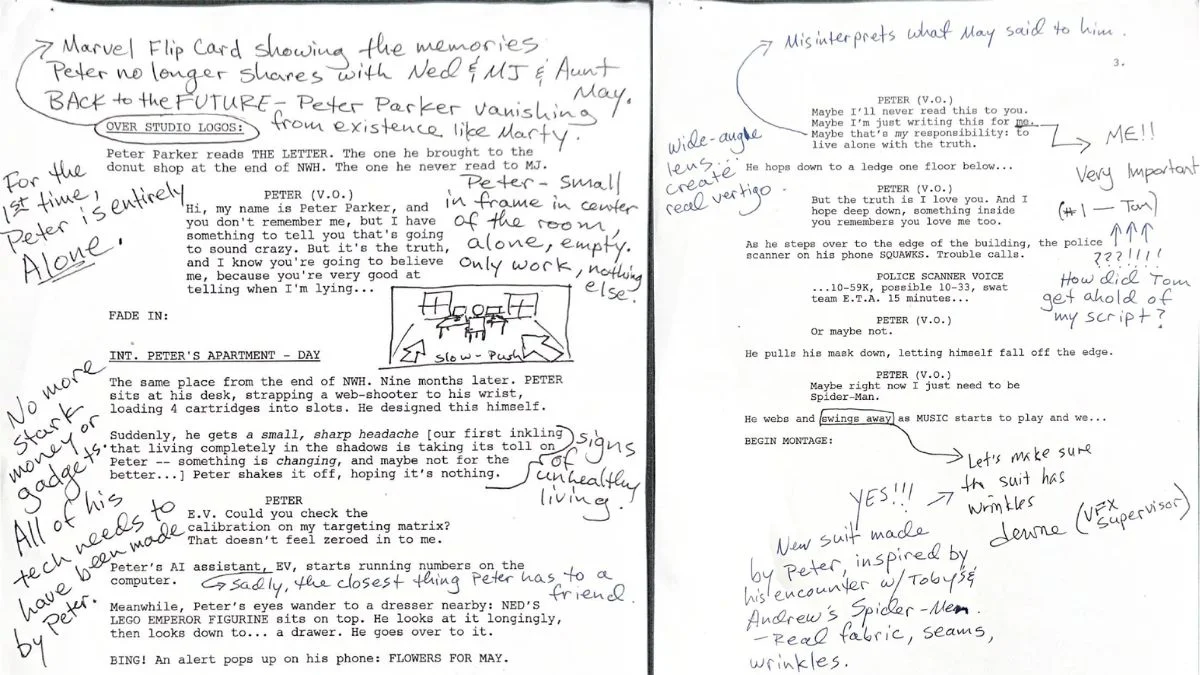 Marvel Flip Card showing the memories
Peter no longer shares with Ned & MJ & Aunt
May.
BACK to the FUTURE - Peter Parker vanishing
from existence like Marty.
OVER STUDIO LOGOS:
Peter Parker reads THE LETTER. The one he brought to the
donut shop at the end of NWH. The one he never read to MJ.
For the
1st time,
Peter is entirely
Alone.
PETER (V.O.)
Hi, my name is Peter Parker, and
you don't remember me, but I have
something to tell you that's going
to sound crazy. But it's the truth,
and I know you're going to believe
me, because you're very good at
telling when I'm lying...
Peter - small
in frame in center
of the room,
alone, empty.
Only work, nothing
else.
slow-push
FADE IN:
INT. PETER'S APARTMENT - DAY
The same place from the end of NWH. Nine months later. PETER
sits at his desk, strapping a web-shooter to his wrist,
loading 4 cartridges into slots. He designed this himself.
No more
Stark
money or
gadgets.
All of his
tech needs to
have been made
by Peter.
Suddenly, he gets a small, sharp headache [our first inkling
that living completely in the shadows is taking its toll on
Peter -- something is changing, and maybe not for the
better...] Peter shakes it off, hoping it's nothing.
signs
of
unhealthy
living.
PETER
E.V. Could you check the
calibration on my targeting matrix?
That doesn't feel zeroed in to me.
Peter's AI assistant, EV, starts running numbers on the
computer.
Sadly, the closest thing Peter has to a
friend.
Meanwhile, Peter's eyes wander to a dresser nearby: NED'S
LEGO EMPEROR FIGURINE sits on top. He looks at it longingly,
then looks down to... a drawer. He goes over to it.
BING! An alert pops up on his phone: FLOWERS FOR MAY.
Misinterprets what May said to him.
3.
PETER (V.O.)
Maybe I'll never read this to you.
Maybe I'm just writing this for me.
Maybe that's my responsibility: to
live alone with the truth.
wide-angle
lens...
create
real vertigo.
ME!!
Very Important
(#1 - Tom)
???!!!!
How did Tom
get ahold of
my script?
He hops down to a ledge one floor below...
PETER (V.O.)
But the truth is I love you. And I
hope deep down, something inside
you remembers you love me too.
As he steps over to the edge of the building, the police
scanner on his phone SQUAWKS. Trouble calls.
POLICE SCANNER VOICE
...10-59K, possible 10-33, swat
team E.T.A. 15 minutes...
PETER (V.O.)
Or maybe not.
He pulls his mask down, letting himself fall off the edge.
PETER (V.O.)
Maybe right now I just need to be
Spider-Man.
He webs and swings away as MUSIC starts to play and we...
BEGIN MONTAGE:
Let's make sure
the suit has
wrinkles
(VFX
Supervisor)
YES!!!
New suit made
by Peter, inspired by
his encounter w/ Toby's &
Andrew's Spider-Men.
- Real fabric, seams,
wrinkles.